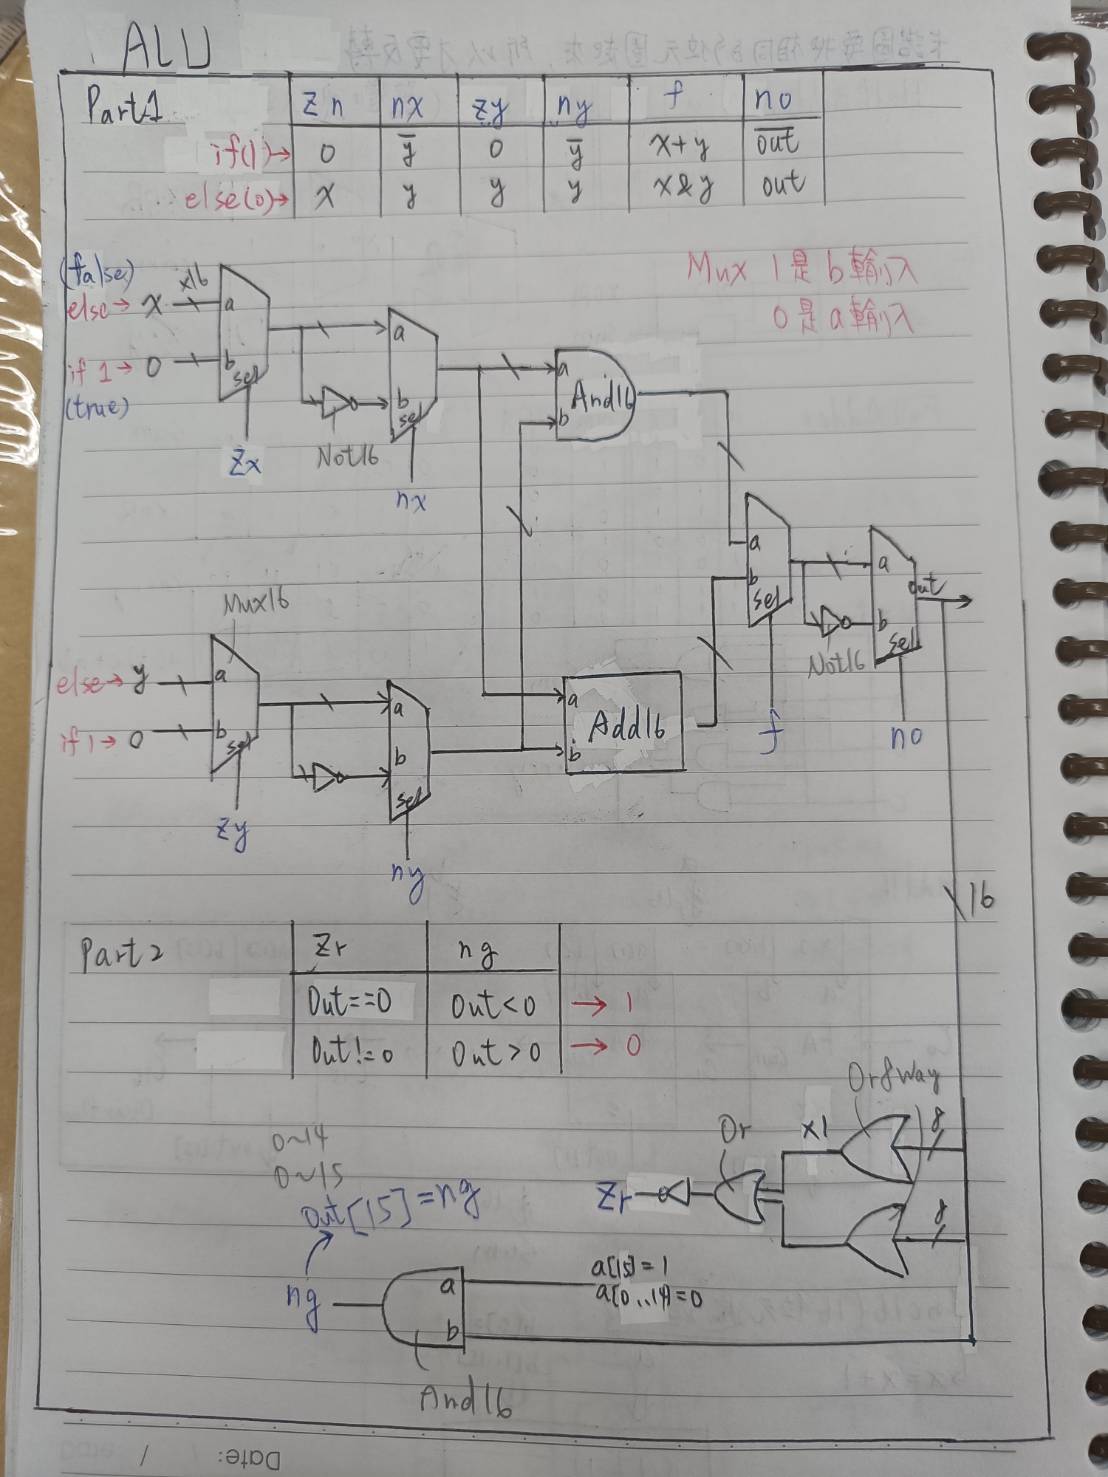 ALU
Part1 Zn nx zy ny f no
if(1)→ 0 y̅ 0 y̅ x+y o̅u̅t̅
else(0)→ x y y y x&y out
(false)
else→ x x16 a
if 1→ 0 b
(true) sel
Zx
Not16
a
b
sel
nx
Mux 1是b輸入
0是a輸入
a And16
b
a
b
sel
f
a out
b
sel
Not16
no
Mux16
else→ y a
if 1→ 0 b
sel
zy
a
b
sel
ny
a Add16
b
16
Part2 Zr ng
Out==0 Out<0 → 1
Out!=0 Out>0 → 0
Or8Way
Or x1 8
Zr 8
0~14
0~15
out[15]=ng
ng
a a[15]=1
a[0..14]=0
b
And16
Date: / /